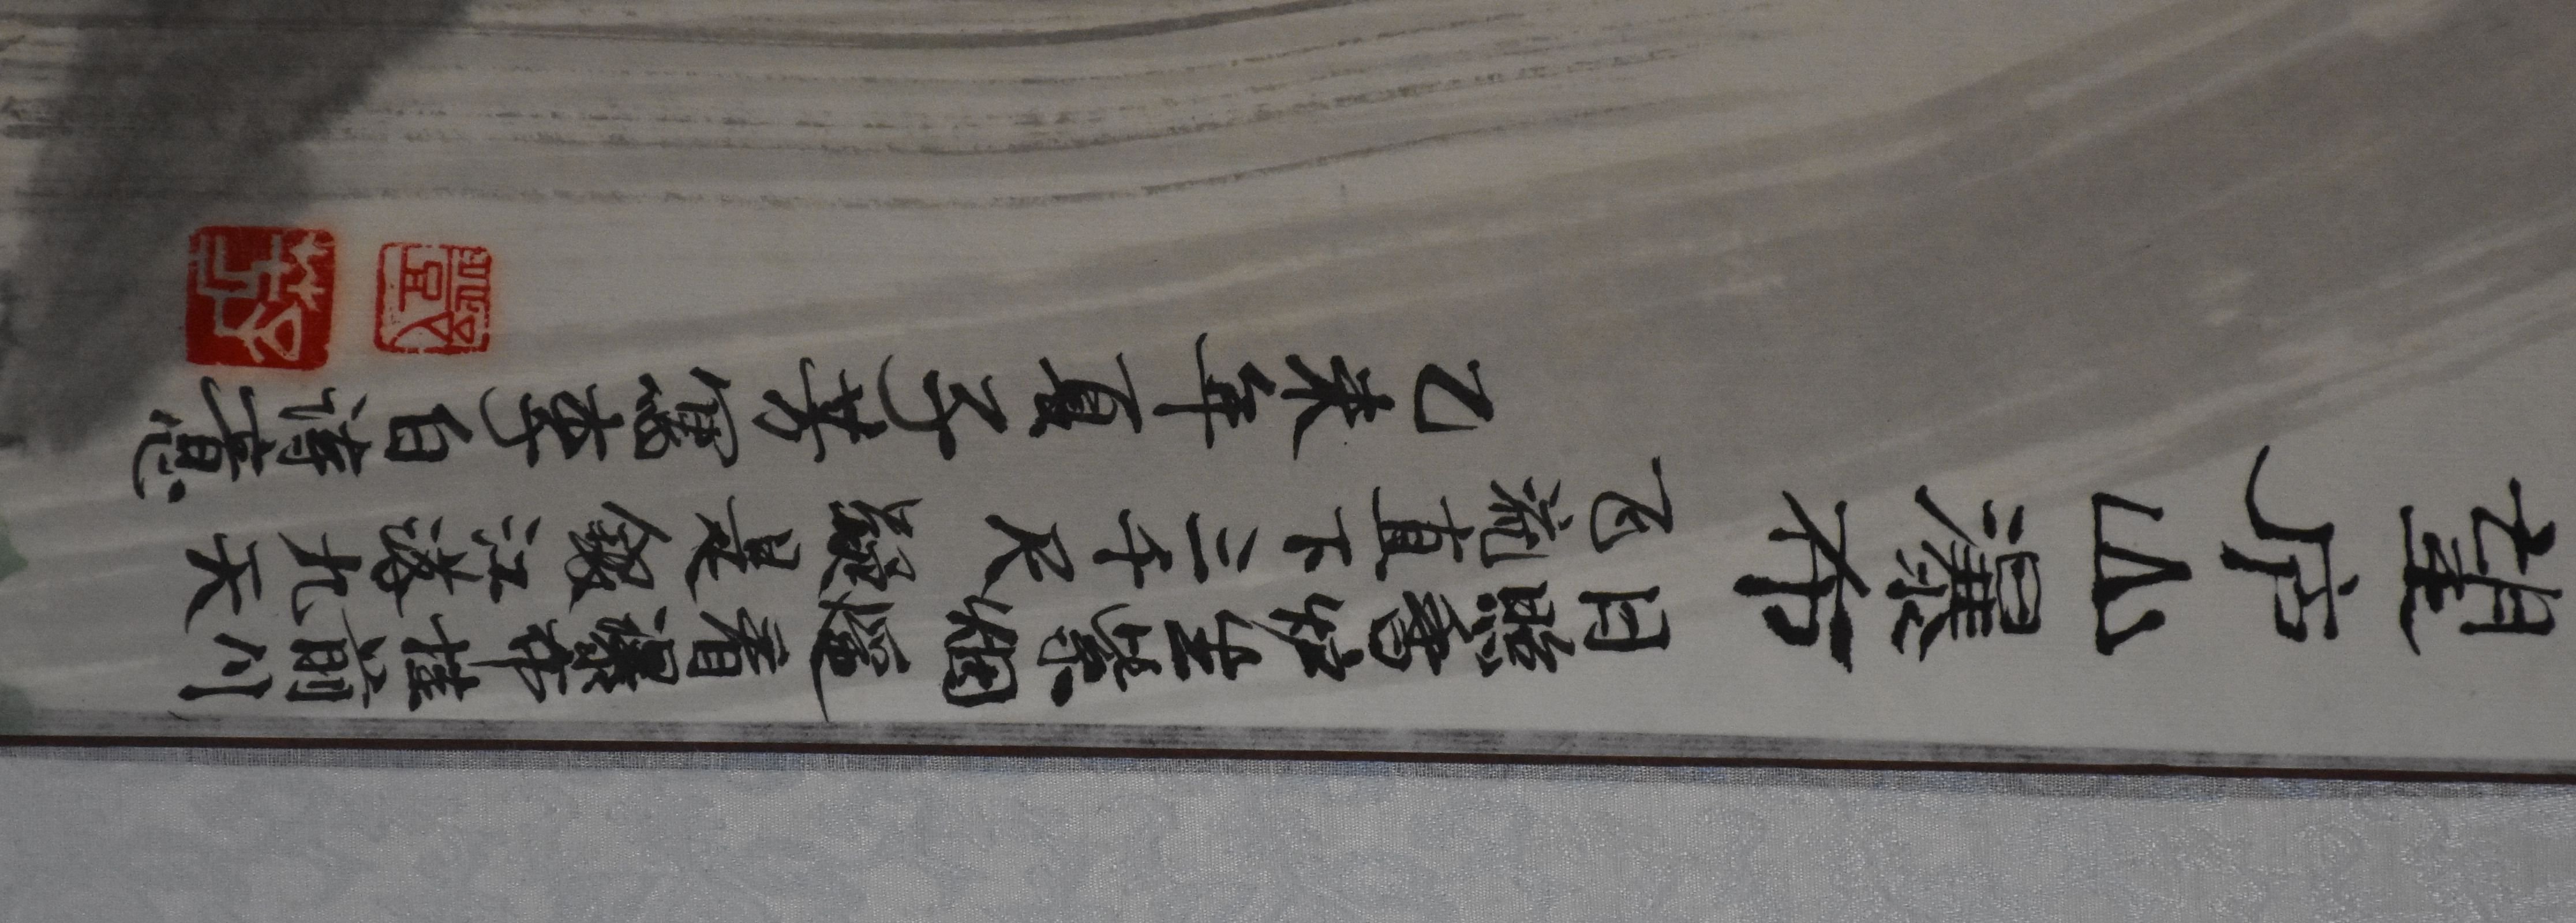 望庐山瀑布
日照香炉生紫烟遥看瀑布挂前川
飞流直下三千尺疑是銀江落九天
乙未年夏子芳寫李白诗意